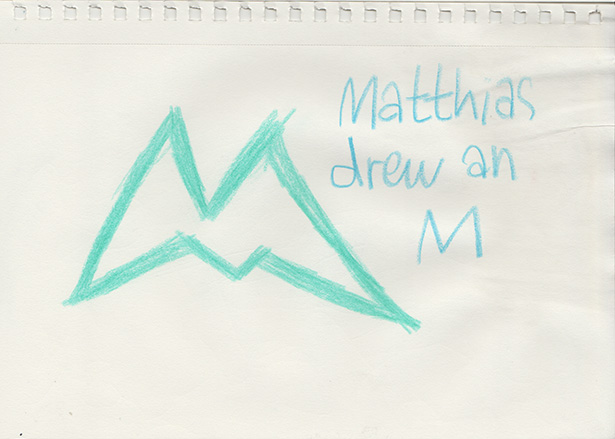 Matthias
drew an
M